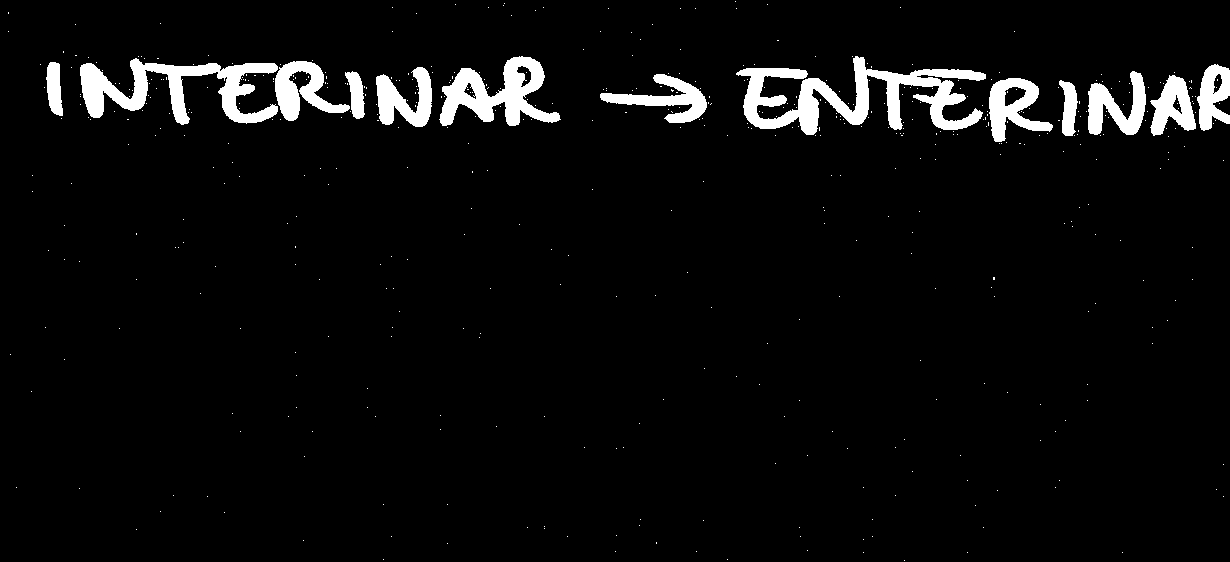 INTERINAR → ENTERINAR